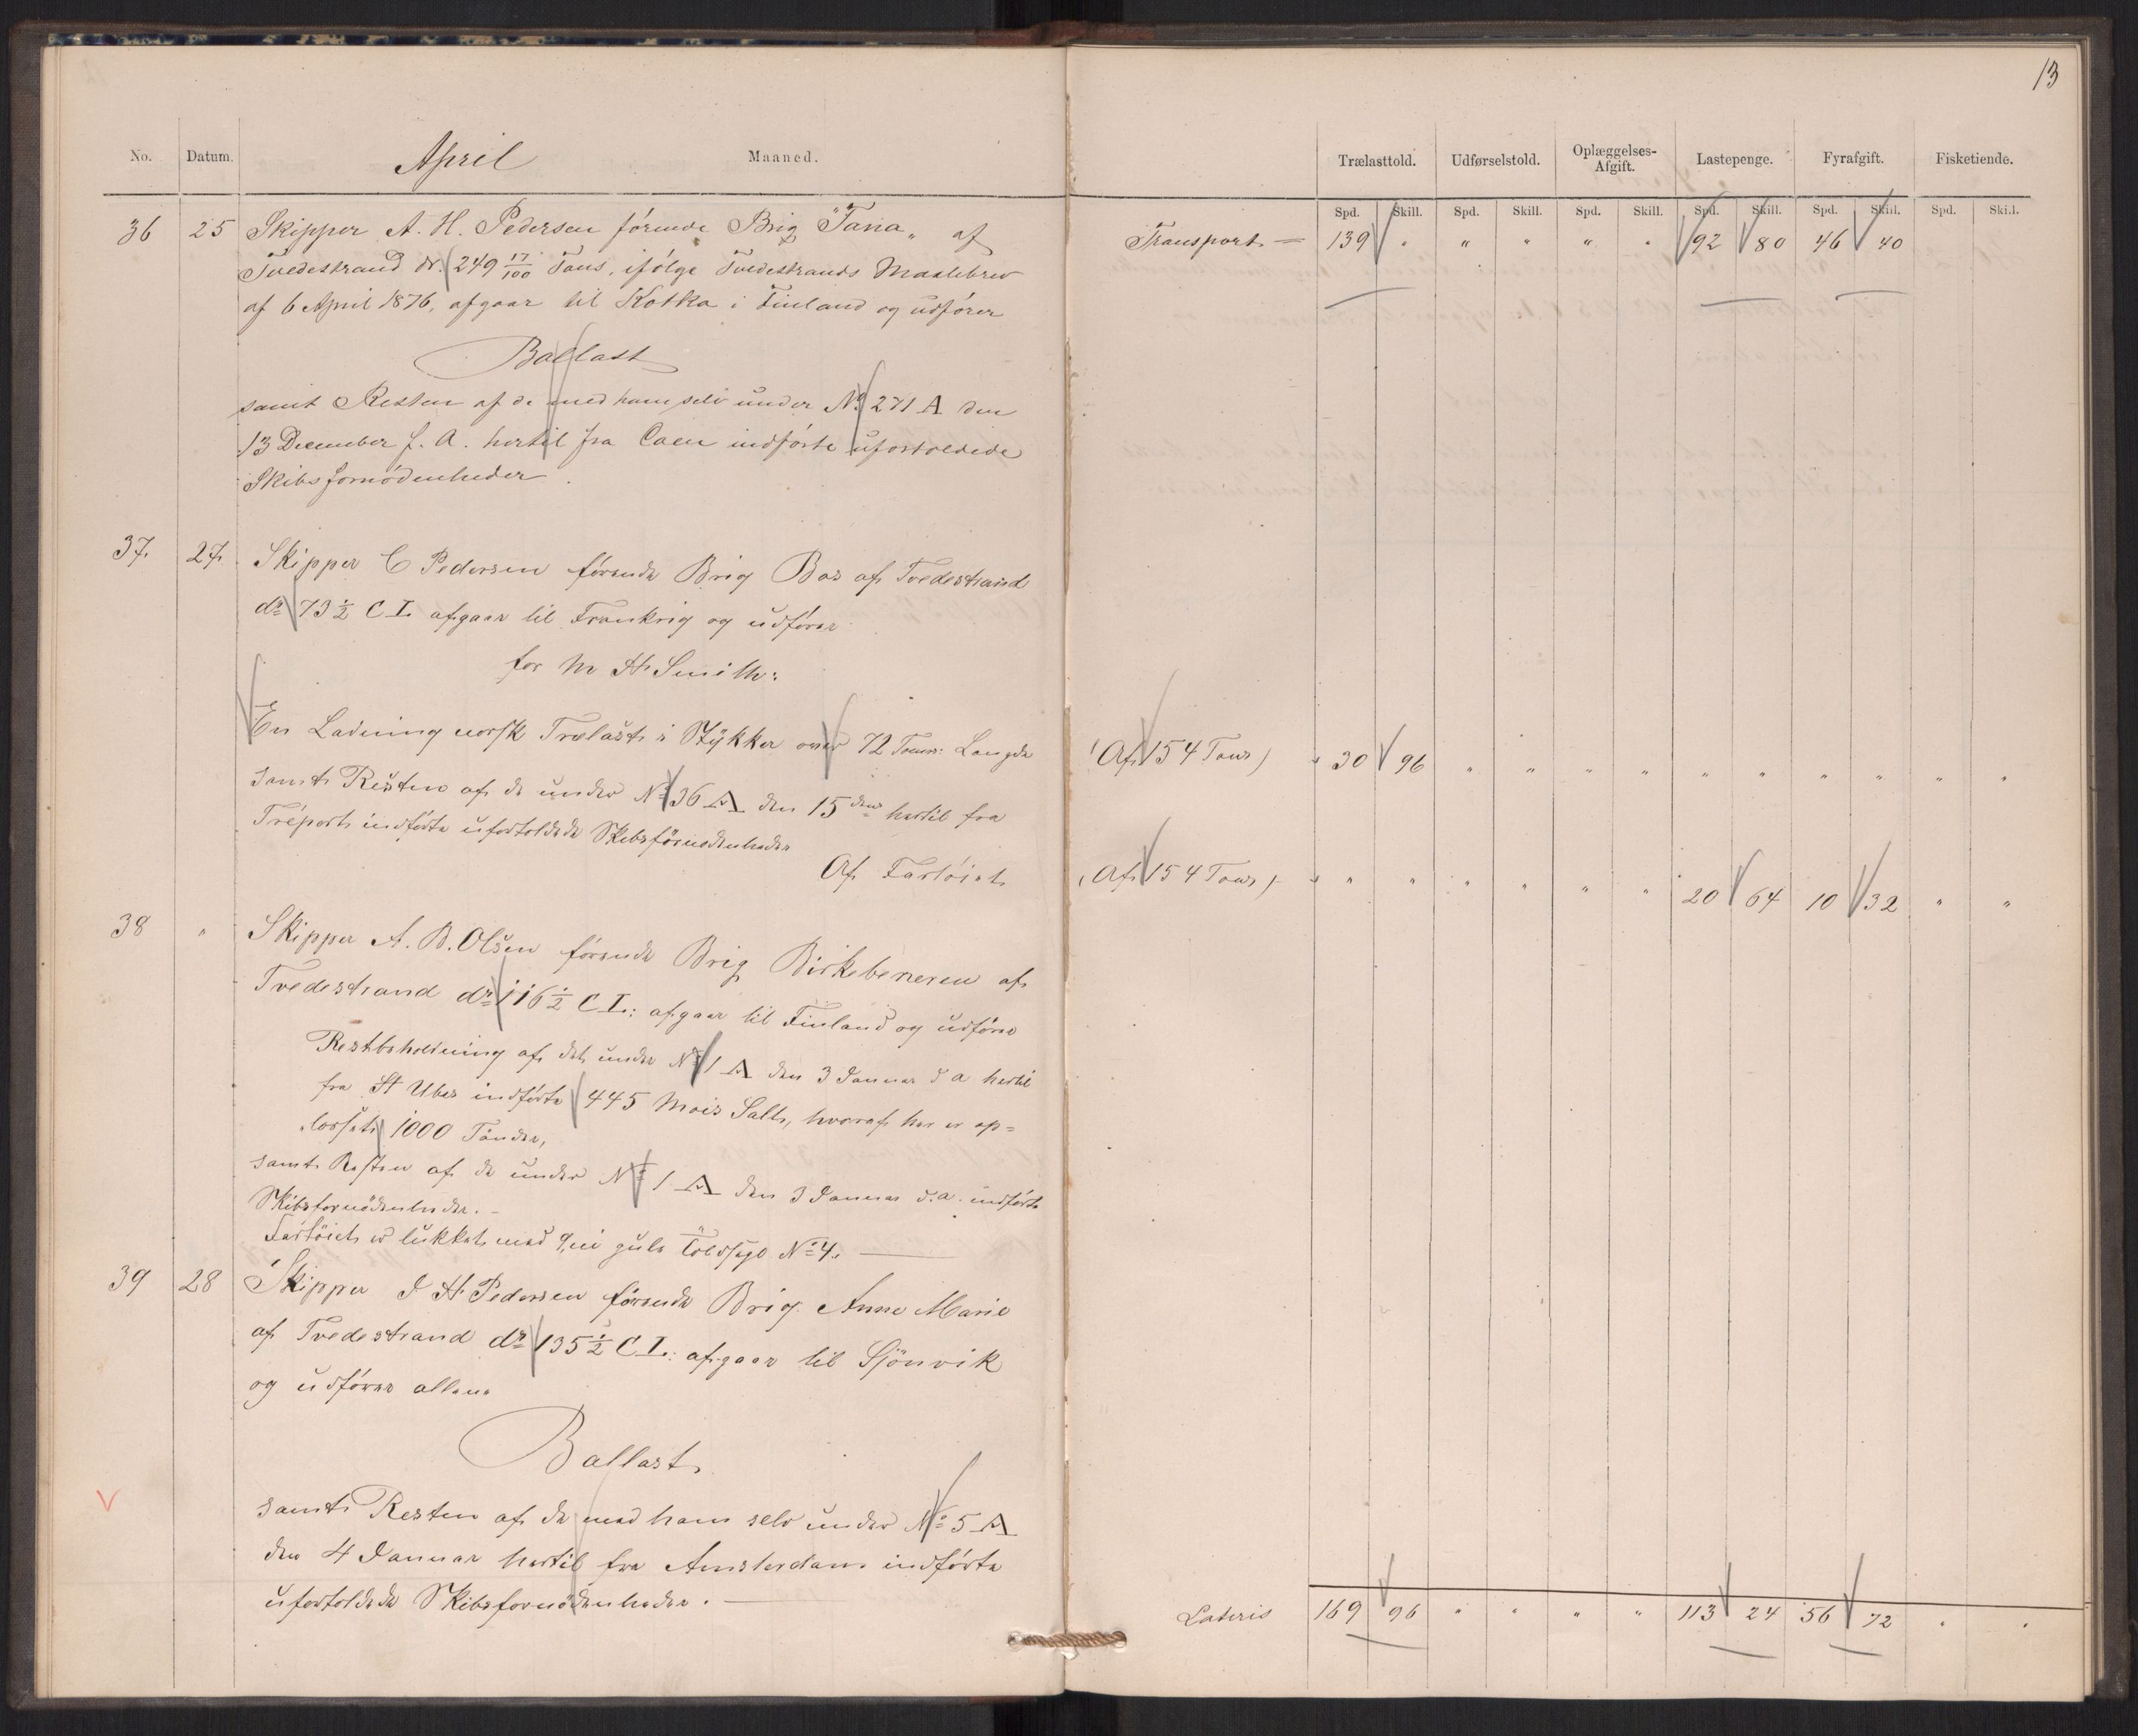 13
No. Datum. April Maaned.
Trælasttold. Udførselstold. Oplæggelses-Afgift. Lastepenge. Fyrafgift. Fisketiende.
Spd. Skill. Spd. Skill. Spd. Skill. Spd. Skill. Spd. Skill. Spd. Skill.
Transport = 139 " " " " " 92 80 46 40
36 25 Skipper A. H. Pedersen förende Brig "Taria„ af
Tvedestrand dr. 249 17/100 Tons, ifölge Tvedestrands Maalebrev
af 6 April 1876, afgaar til Kotka i Finland og udförer
Ballast
samt Resten af de med ham selv under No 271 A den
13 December f. A. hertil fra Caen indförte ufortoldede
Skibsfornödenheder.
37. 27. Skipper C Pedersen förende Brig Bos af Tvedestrand
dr 73 1/2 C L. afgaar til Frankrig og udförer
for M H Smith:
En Ladning norsk Trælast i Stykker over 72 Toms: Længde (Af 154 Tons) " 30 96 " " " " " " " " " "
samt Resten af de under No 36 A den 15 den hertil fra
Tréport indförte ufortoldede Skibsfornödenheder
Af Fartöiet (Af 154 Tons) " " " " " " " 20 64 10 32 " "
38 " Skipper A. B. Olsen förende Brig Birkebeneren af
Tvedestrand dr 116 1/2 C L.: afgaar til Finland og udförer
Restbeholdning af det under No 1 A den 3 Januar d a hertil
fra St Ubes indförte 445 Mois Salt, hvoraf her er op=
losset 1000 Tönder,
samt Resten af de under No 1 A den 3 Januar d. a. indförte
Skibsfornödenheder. -
Fartöiet er lukket med 9, ni gule Toldsegl No 4.
39 28 Skipper J H Pedersen förende Brig Anne Marie
af Tvedestrand dr 135 1/2 C L.: afgaar til Sjönvik
og udförer allene
Ballast
samt Resten af de med ham selv under No 5 A
den 4 Januar hertil fra Amsterdam indförte
ufortoldede Skibsfornödenheder. -
Lateris 169 96 " " " " 113 24 56 72 " "